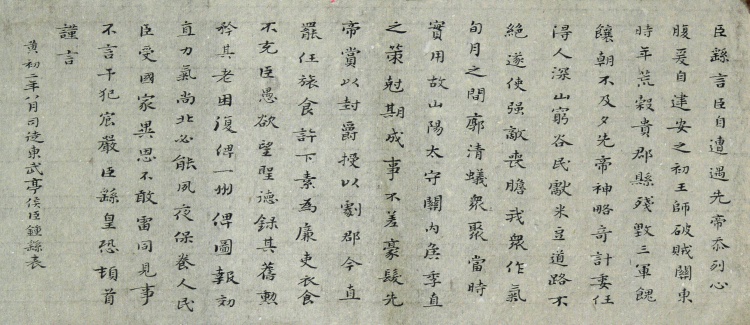 臣繇言臣自遭遇先帝忝列心
腹爰自建安之初王師破賊關東
時年荒穀貴郡縣殘毀三軍餽
饟朝不及夕先帝神略奇計委任
得人深山窮谷民獻米豆道路不
絕遂使强敵喪膽我眾作氣
旬月之間廓清蟻眾聚當時
實用故山陽太守關內侯季直
之策尅期成事不差豪髮先
帝賞以封爵授以劇郡今直
罷任旅食許下素為廉吏衣食
不充臣愚欲望聖德錄其舊勳
矜其老困復俾一州俾圖報効
直力氣尚壯必能夙夜保養人民
臣受國家異恩不敢雷同見事
不言干犯宸嚴臣繇皇恐頓首
謹言
黃初二年八月司徒東武亭侯臣鍾繇表